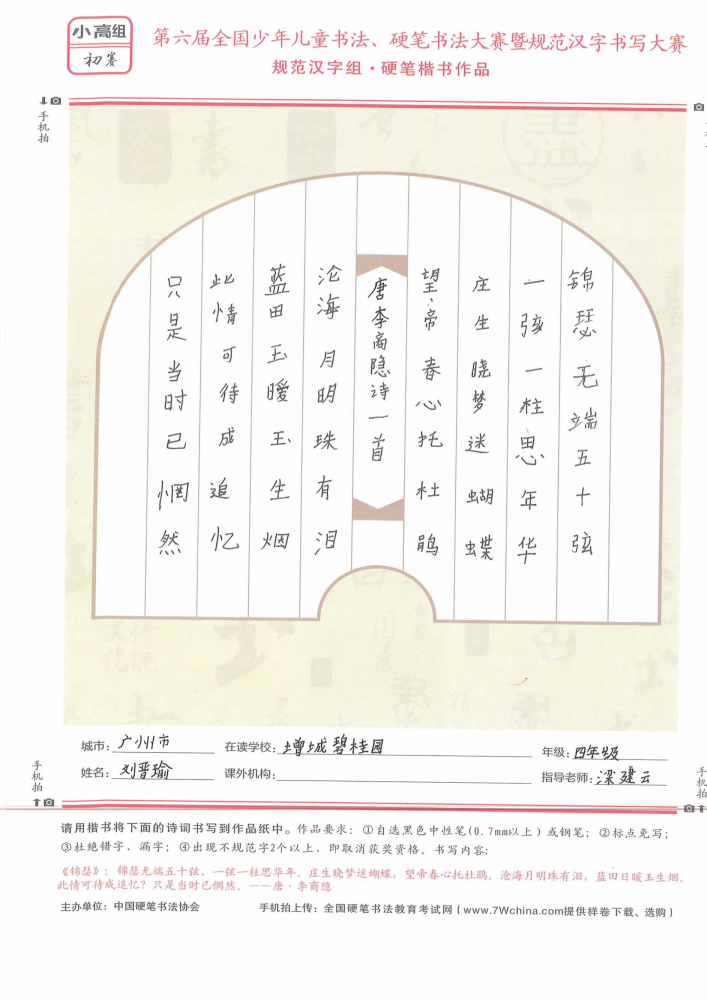 小高组
初赛
第六届全国少年儿童书法、硬笔书法大赛暨规范汉字书写大赛
规范汉字组·硬笔楷书作品
手机拍
锦瑟无端五十弦
一弦一柱思年华
庄生晓梦迷蝴蝶
望帝春心托杜鹃
唐李商隐诗一首
沧海月明珠有泪
蓝田玉暖玉生烟
此情可待成追忆
只是当时已惘然
城市：广州市 在读学校：增城碧桂园 年级：四年级
姓名：刘晋瑜 课外机构： 指导老师：梁建云
手机拍
手机拍
请用楷书将下面的诗词书写到作品纸中。作品要求：①自选黑色中性笔(0.7mm以上)或钢笔；②标点免写；
③杜绝错字、漏字；④出现不规范字2个以上，即取消获奖资格。书写内容：
《锦瑟》：锦瑟无端五十弦，一弦一柱思华年。庄生晓梦迷蝴蝶，望帝春心托杜鹃。沧海月明珠有泪，蓝田日暖玉生烟。
此情可待成追忆？只是当时已惘然。——唐·李商隐
主办单位：中国硬笔书法协会 手机拍上传：全国硬笔书法教育考试网（www.7Wchina.com提供样卷下载、选购）